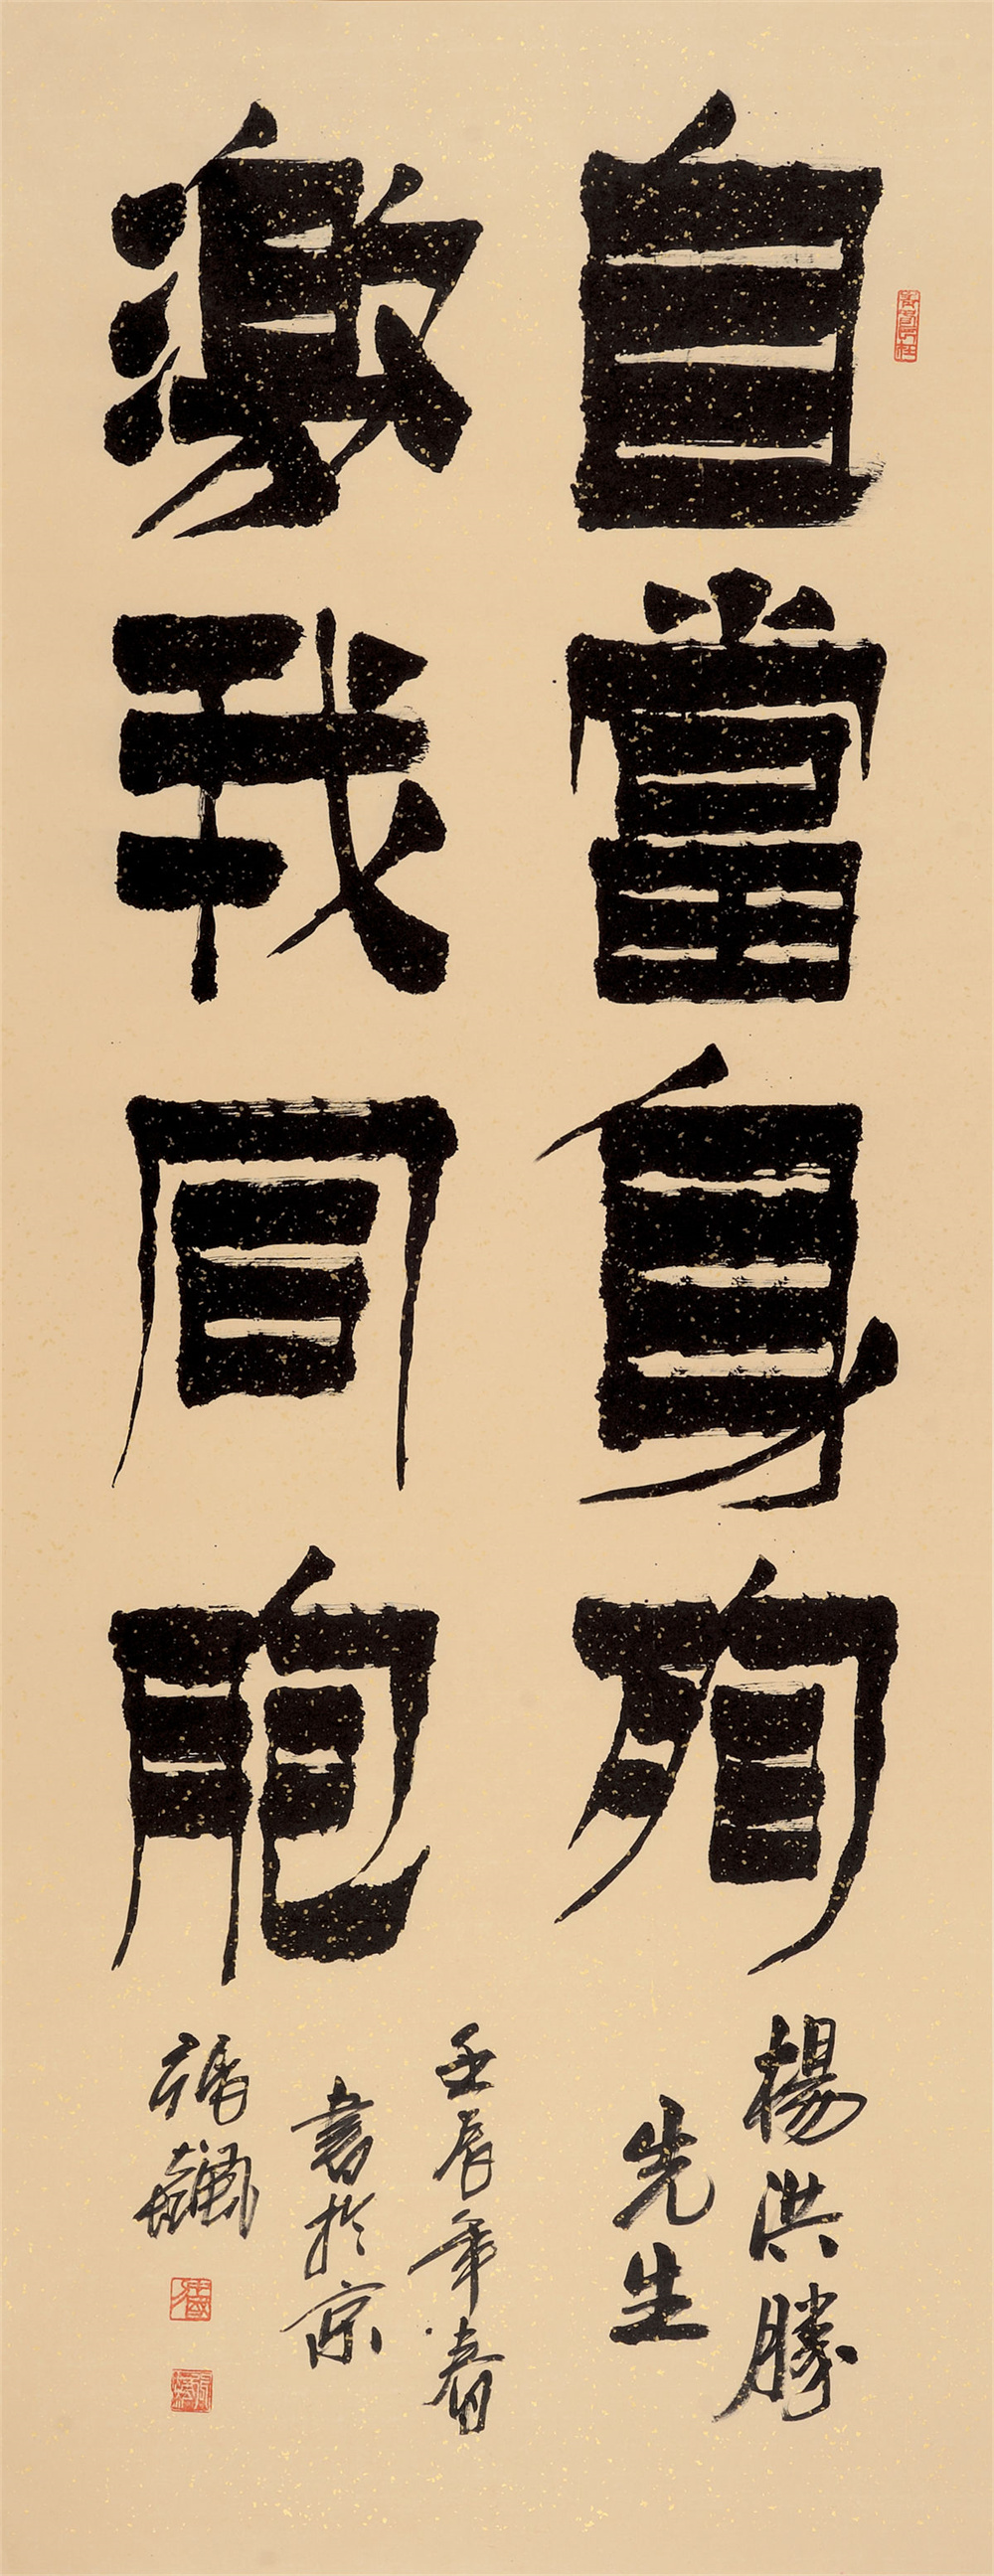 自當身殉
激我同胞
楊洪勝
先生
壬辰年春
書於京
張